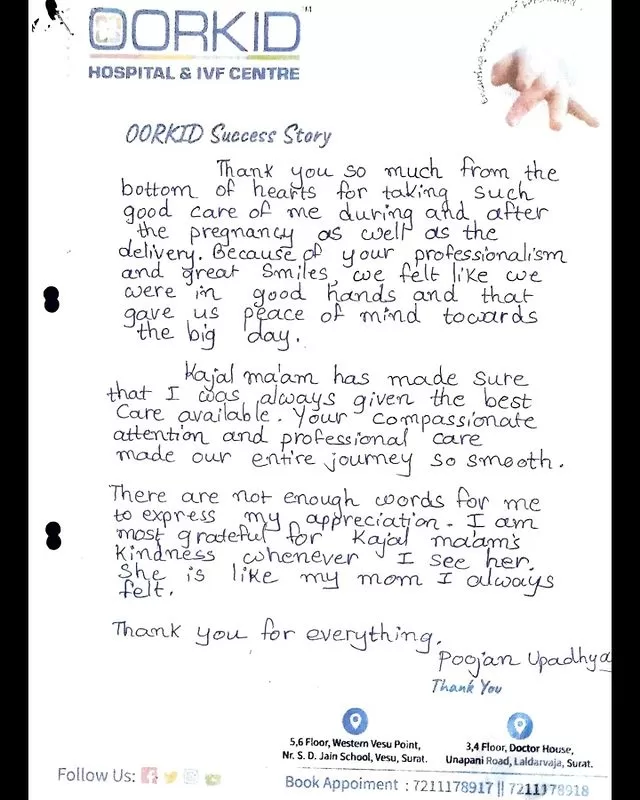 OORKID™
HOSPITAL & IVF CENTRE
OORKID Success Story
Thank you so much from the
bottom of hearts for taking such
good care of me during and after
the pregnancy as well as the
delivery. Because of your professionalism
and great smiles, we felt like we
were in good hands and that
gave us peace of mind towards
the big day.
Kajal ma'am has made sure
that I was always given the best
Care available. Your compassionate
attention and professional care
made our entire journey so smooth.
There are not enough words for me
to express my appreciation. I am
most grateful for Kajal ma'am's
kindness whenever I see her.
She is like my mom I always
felt.
Thank you for everything.
Poojan Upadhya
Thank You
5,6 Floor, Western Vesu Point,
Nr. S. D. Jain School, Vesu, Surat.
3,4 Floor, Doctor House,
Unapani Road, Laldarvaja, Surat.
Follow Us:
Book Appoiment : 7211178917 || 7211178918